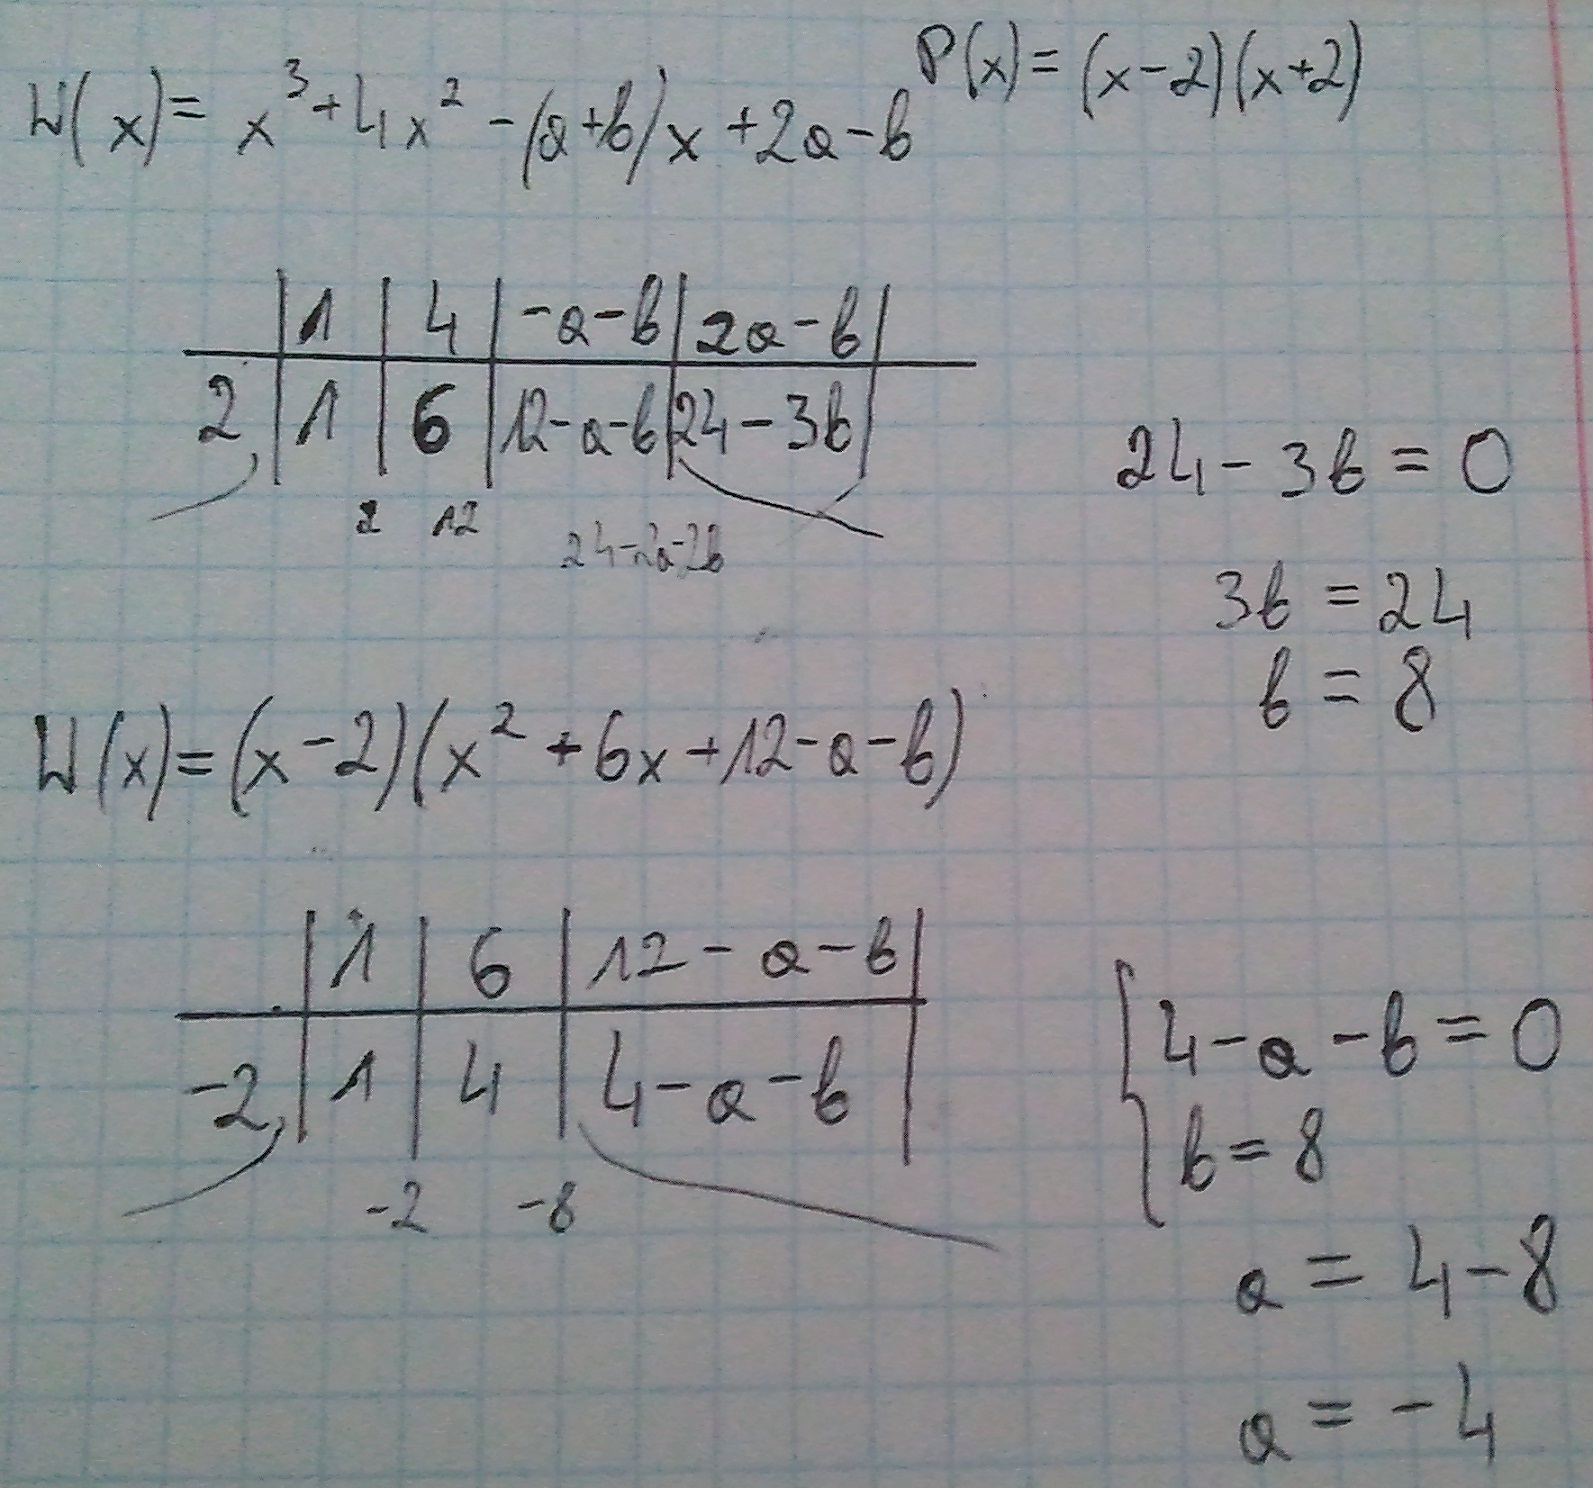 W(x) = x³ + 4x² - (a+b)x + 2a - b
P(x) = (x-2)(x+2)
1 | 4 | -a-b | 2a-b
2 | 1 | 6 | 12-a-b | 24-3b
2 12 24-2a-2b
24 - 3b = 0
3b = 24
b = 8
W(x) = (x-2)(x² + 6x + 12 - a - b)
1 | 6 | 12 - a - b
-2 | 1 | 4 | 4 - a - b
-2 -8
{ 4 - a - b = 0
b = 8
a = 4 - 8
a = -4